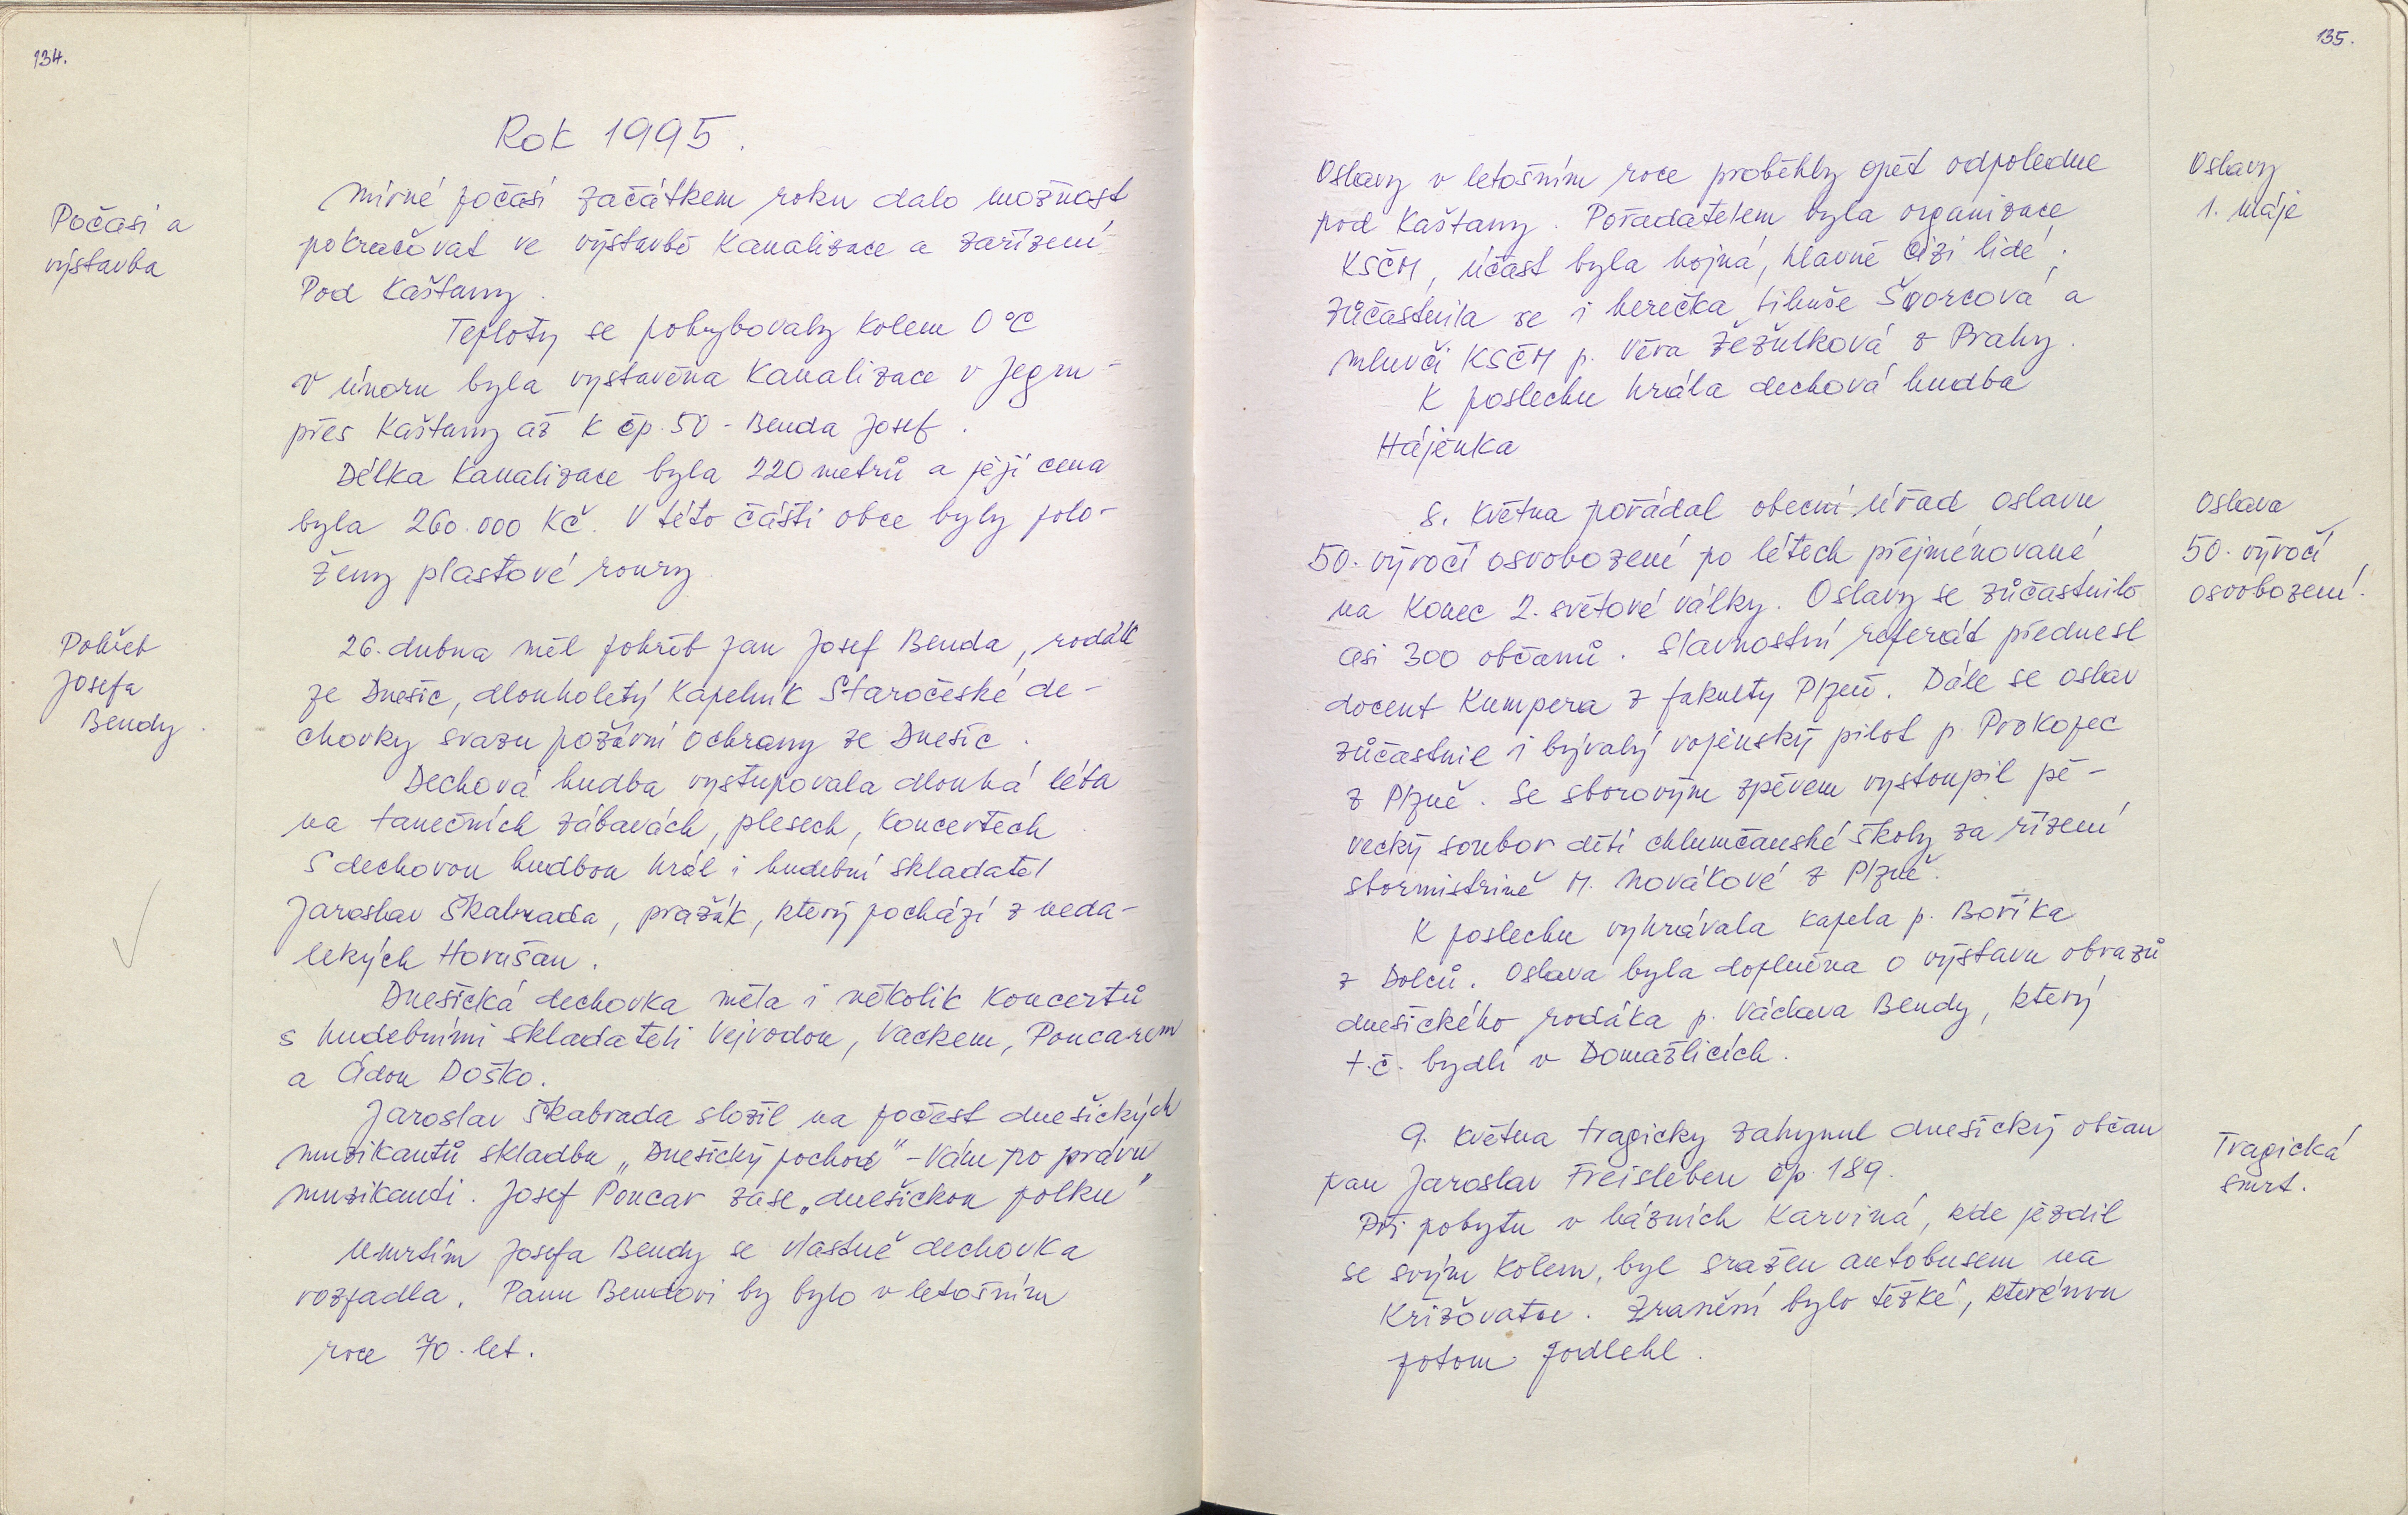 134.
Rok 1995.
Počasí a
výstavba
Mírné počasí začátkem roku dalo možnost
pokračovat ve výstavbě kanalizace a zařízení
Pod Kaštany.
Teploty se pohybovaly kolem 0 °C
V únoru byla vystavěna kanalizace v
přes Kaštany až k čp. 50 - Benda Josef.
Délka kanalizace byla 220 metrů a její cena
byla 260.000 Kč. V této části obce byly polo-
ženy plastové roury
Pohřeb
Josefa
Bendy.
26. dubna měl pohřeb pan Josef Benda, rodák
ze Dnešic, dlouholetý kapelník Staročeské de-
chovky svazu požární ochrany ze Dnešic.
Dechová hudba vystupovala dlouhá léta
na tanečních zábavách, plesech, koncertech
S dechovou hudbou hrál i hudební skladatel
Jaroslav Škabrada, pražák, který pochází z neda-
lekých Horušan.
Dnešická dechovka měla i několik koncertů
s hudebními skladateli Vejvodou, Vackem, Poncarem
a Ádou Doško.
Jaroslav Škabrada složil na počest dnešických
muzikantů skladbu „Dnešický pochod" - Vám po právu
muzikanti. Josef Poncar zase „dnešickou polku"
Úmrtím Josefa Bendy se vlastně dechovka
rozpadla. Panu Bendovi by bylo v letošním
roce 70. let.
135.
Oslavy
1. máje
Oslavy v letošním roce proběhly opět odpoledne
pod Kaštany. Pořadatelem byla organizace
KSČM, účast byla hojná, hlavně cizí lidé,
zůčastnila se i herečka Jiřina Švorcová a
mluvčí KSČM p. Věra Žežulková z Prahy.
K poslechu hrála dechová hudba
Hájenka
Oslava
50. výročí
osvobození.
8. května pořádal obecní úřad oslavu
50. výročí osvobození po létech přejmenované
na konec 2. světové války. Oslavy se zůčastnilo
asi 300 občanů. Slavnostní referát přednesl
docent Kumpera z fakulty Plzeň. Dále se oslav
zůčastnil i bývalý vojenský pilot p. Prokopec
z Plzně. Se sborovým zpěvem vystoupil pě-
vecký soubor dětí chlumčanské školy za řízení
sbormistrině M. Novákové z Plzně.
K poslechu vyhrávala kapela p. Boříka
z Dolců. Oslava byla doplněna o výstavu obrazů
dnešického rodáka p. Václava Bendy, který
t.č. bydlí v Domažlicích.
Tragická
smrt.
9. května tragicky zahynul dnešický občan
pan Jaroslav Freisleben čp. 189.
Při pobytu v lázních Karviná, kde jezdil
se svým kolem, byl sražen autobusem na
křižovatce. Zranění bylo těžké, kterému
potom podlehl.